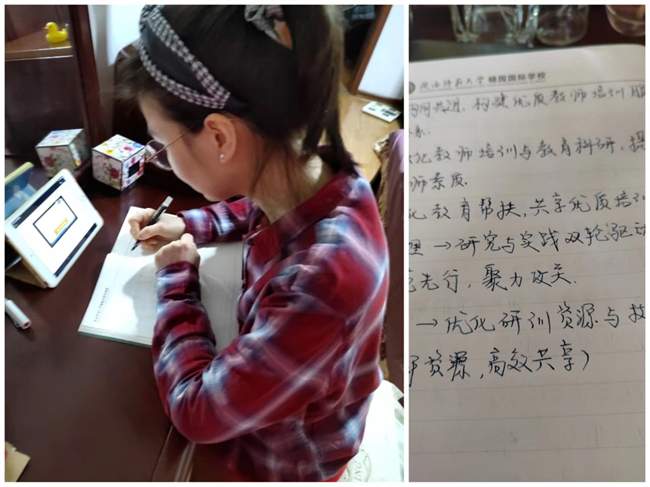 陕西师范大学 锦园国际学校
构建优质教师培训
化教师培训与教育科研,提
师素质.
化教育帮扶,共享优质培训
→研究与实践双轮驱动
先行,聚力攻关.
→优化研训资源与教
资源,高效共享)